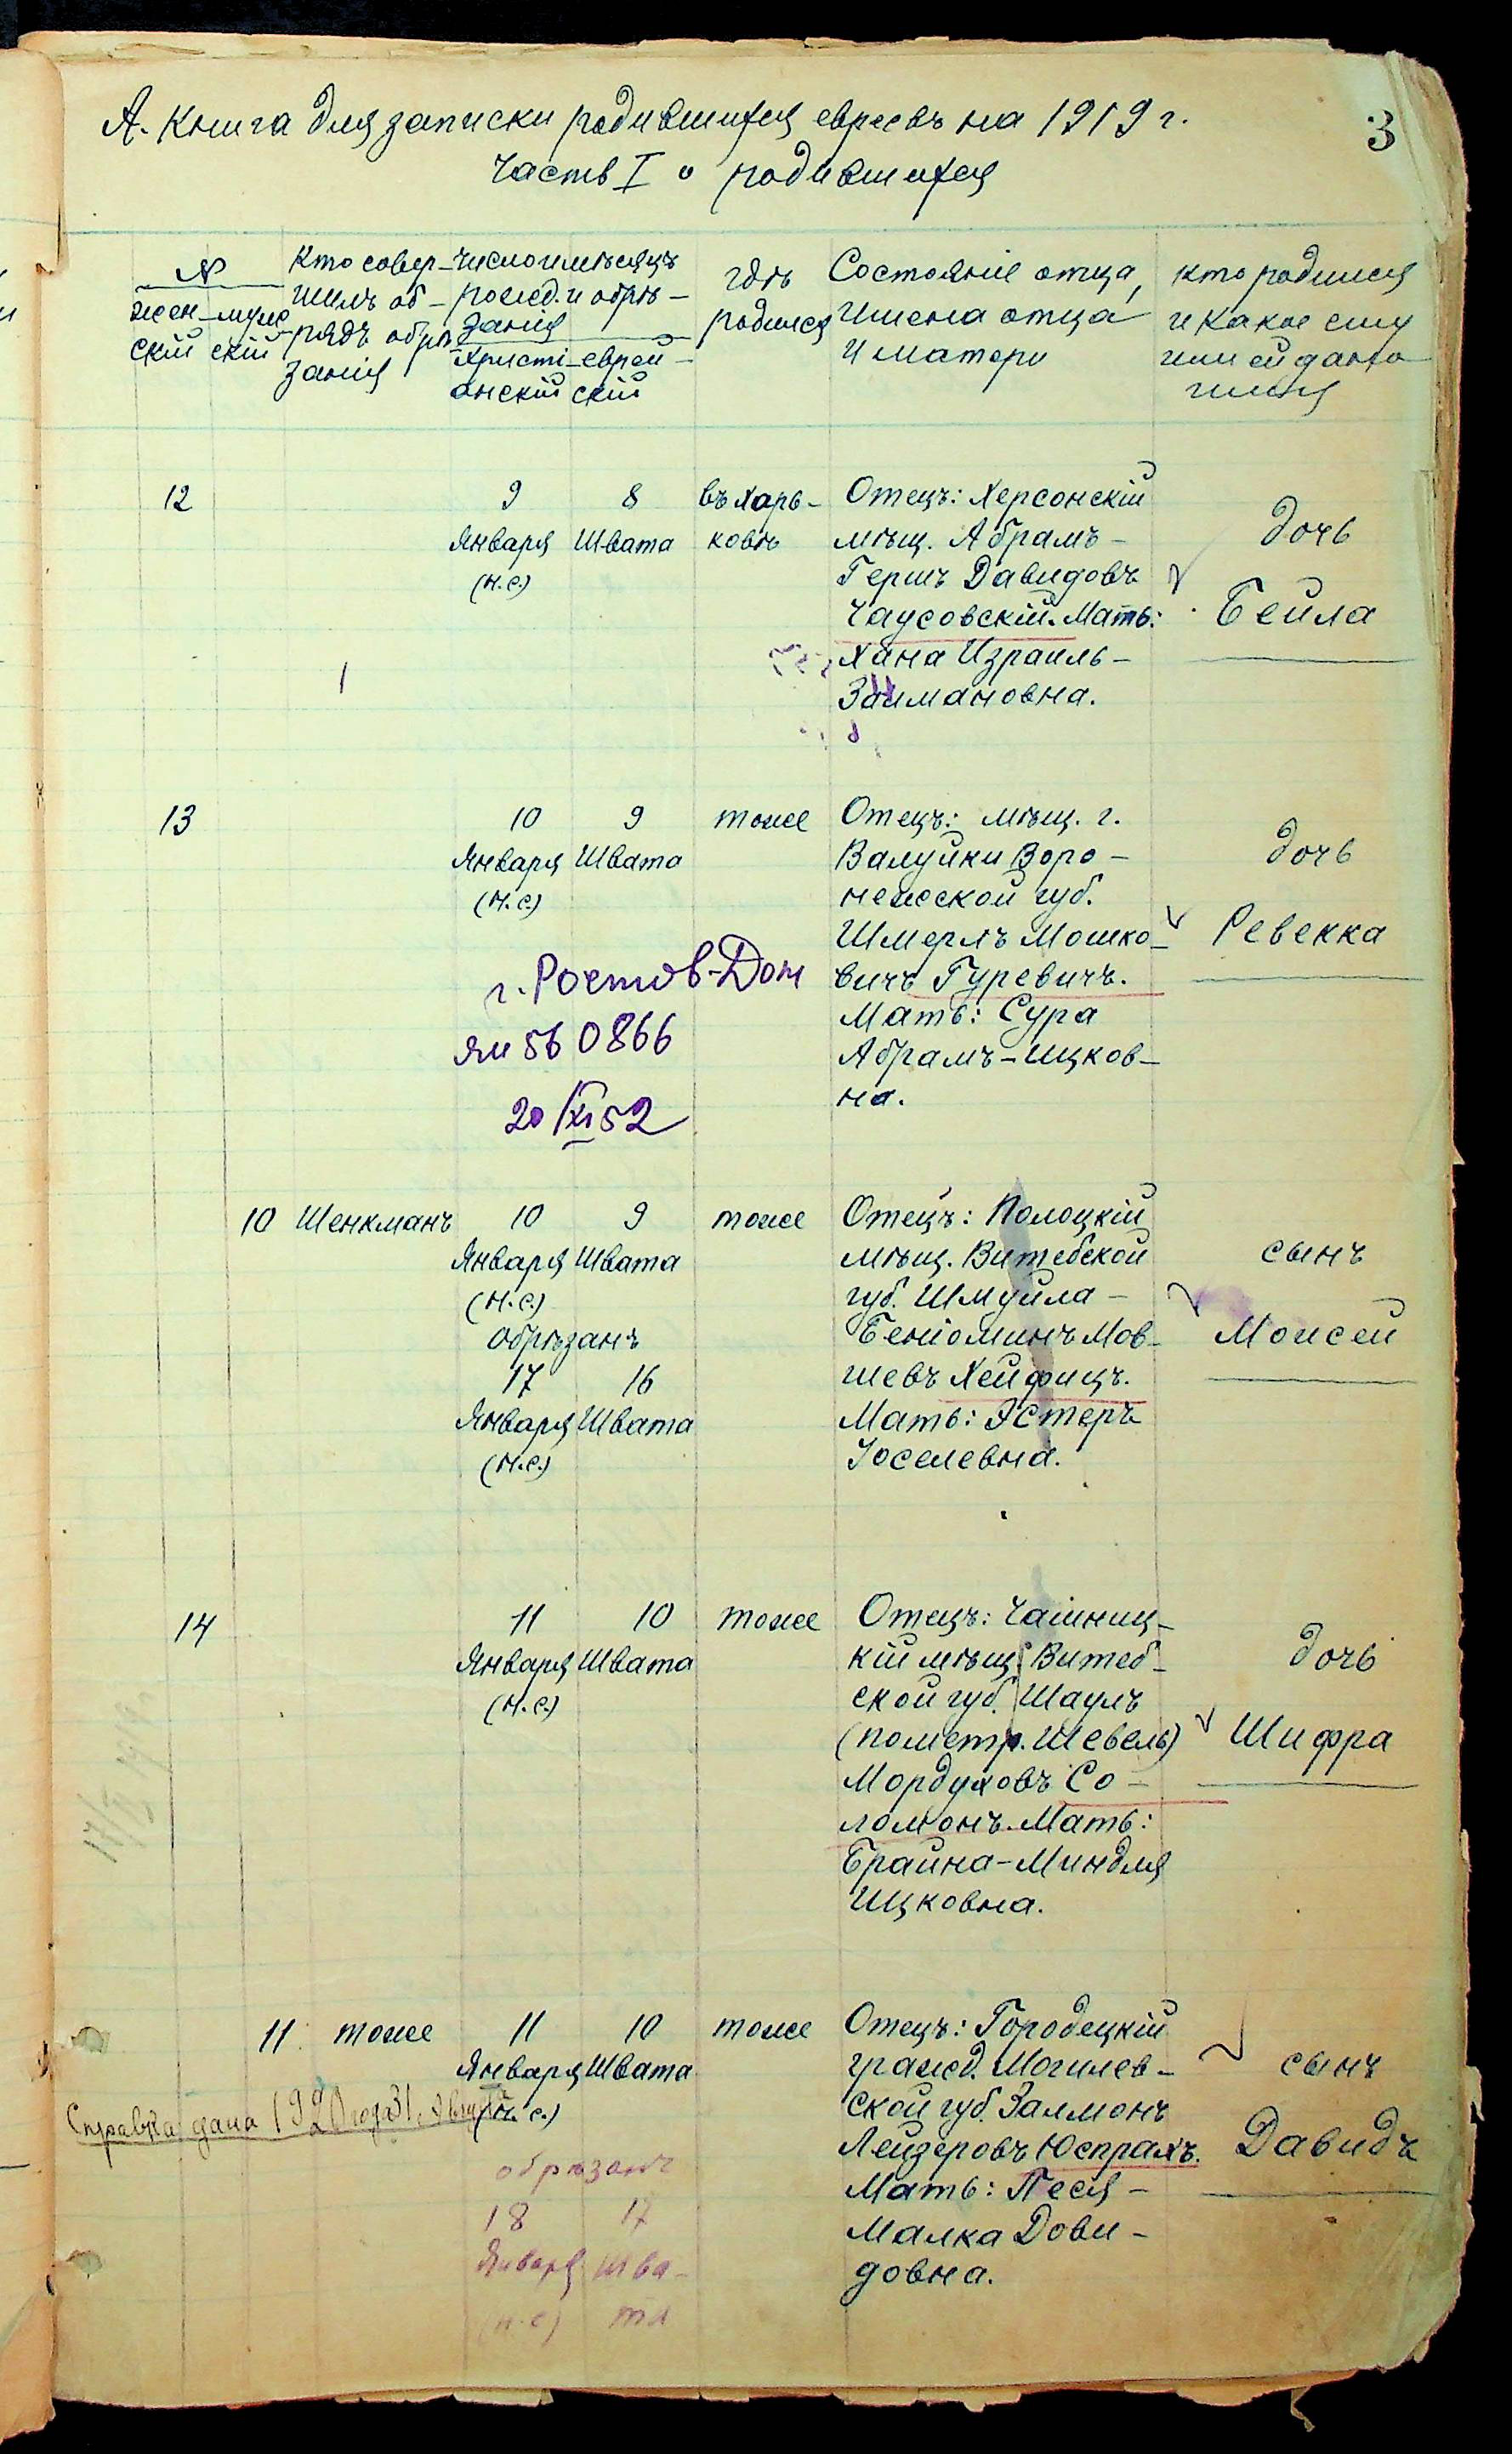 А. Книга для записки родившихся евреевъ на 1919 г.
3
Часть I о родившихся
№
жен- муже-
скій скій
Кто совер-
шилъ об-
рядъ обрѣ-
занія
Число и мѣсяцъ
рожд. и обрѣ-
занія
Христі- еврей-
анскій скій
гдѣ
родился
Состояніе отца,
имена отца
и матери
кто родился
и какое ему
или ей данно
имя
12
9 8
Января Швата
(н.с.)
въ Харь-
ковѣ
Отецъ: Херсонскій
мѣщ. Абрамъ-
Гершъ Давидовъ
Чаусовскій. Мать:
Хана Израиль-
Займановна.
дочь
Бейла
1
13
10 9
Января Швата
(н.с.)
тоже
Отецъ: мѣщ. г.
Валуйки Воро-
нежской губ.
Шмерлъ Мошко-
вичъ Гуревичъ.
Мать: Сура
Абрамъ-Ицков-
на.
дочь
Ревекка
г. Ростов-Дон
ЯИ 560866
20/XI 52
10
Шенкманъ
10 9
Января Швата
(н.с.)
обрѣзанъ
17 16
Января Швата
(н.с.)
тоже
Отецъ: Полоцкій
мѣщ. Витебской
губ. Шмуйла-
Беніоминъ Мов-
шевъ Хейфицъ.
Мать: Эстеръ
Іоселевна.
сынъ
Моисей
14
11 10
Января Швата
(н.с.)
тоже
Отецъ: Чашниц-
кій мѣщ. Витеб-
ской губ. Шаулъ
(по метр. Шевель)
Мордуховъ Со-
ломонъ. Мать:
Брайна-Миндля
Ицковна.
дочь
Шифра
11
тоже
11 10
Января Швата
(н.с.)
обрѣзанъ
18 17
Января Шва-
(н.с) та
тоже
Отецъ: Городецкій
гражд. Могилев-
ской губ. Залмонъ
Лейзеровъ Юспрахъ.
Мать: Песя-
Малка Дови-
довна.
сынъ
Давидъ
Справка дана 1920 года 31 Августа